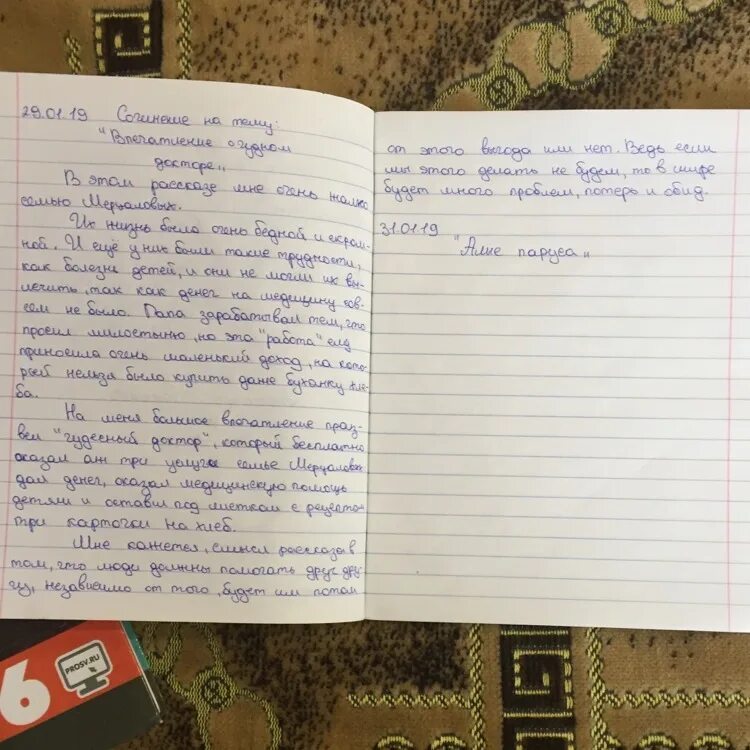 29.01.19 Сочинение на тему:
"Впечатление о чудном
докторе„
В этом рассказе мне очень жалко
семью Мерцаловых.
Их жизнь была очень бедной и скром-
ной. И ещё у них были такие трудности,
как болезни детей, и они не могли их вы-
лечить, так как денег на медицину сов-
сем не было. Папа зарабатывал тем, что
просил милостыню, но эта "работа" ему
приносила очень маленький доход, на кото-
рый нельзя было купить даже буханку хле-
ба.
На меня большое впечатление произ-
вел "чудесный доктор", который бесплатно
оказал аж три услуги семье Мерцаловых
дал денег, оказал медицинскую помощь
детям и оставил под листком с рецептом
три карточки на хлеб.
Мне кажется, смысл рассказа в
том, что люди должны помогать друг дру-
гу, независимо от того, будет им потом
от этого выгода или нет. Ведь если
мы этого делать не будем, то в мире
будет много проблем, потерь и обид.
31.01.19
"Алые паруса„
6
PROSV.RU